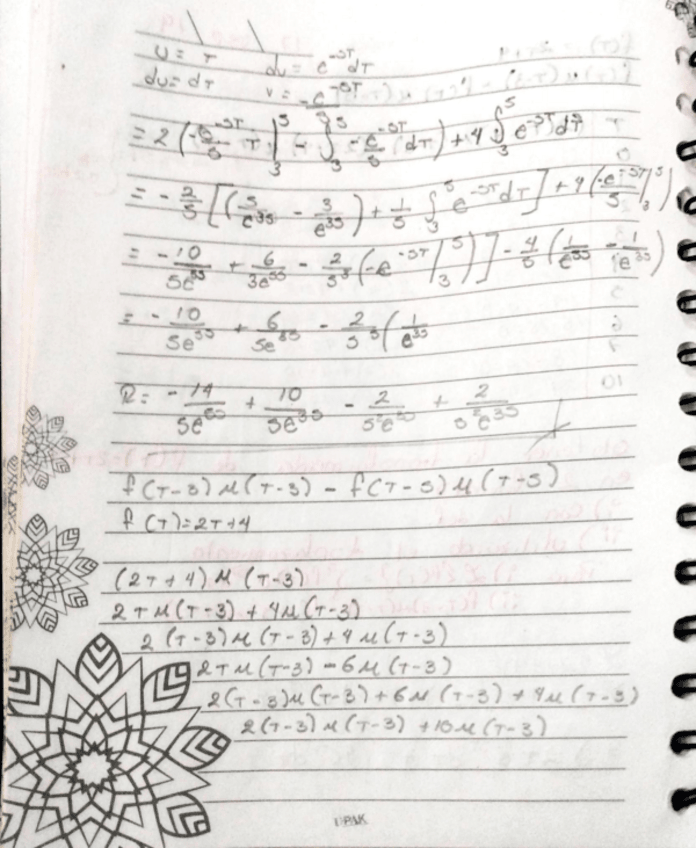 u = T dv = e^-ST dT
du = dT v = -e^-ST/S
= 2 (-e^-ST/S T |_3^5 - ∫_3^5 -e^-ST/S dT) + 4 ∫_3^5 e^-ST dT
= -2/S [(5/e^5S - 3/e^3S) + 1/S ∫_3^5 e^-ST dT] + 4 (-e^-ST/S |_3^5)
= -10/Se^5S + 6/3e^5S - 2/S^2 (-e^-ST |_3^5)] - 4/S (1/e^5S - 1/e^3S)
= -10/Se^5S + 6/Se^3S - 2/S^2 (1/e^3S
R= -14/Se^5S + 10/Se^3S - 2/S^2e^5S + 2/S^2e^3S
f(T-3)μ(T-3) - f(T-5)μ(T-5)
f(T)=2T+4
(2T+4)μ(T-3)
2Tμ(T-3) + 4μ(T-3)
2(T-3)μ(T-3)+4μ(T-3)
2Tμ(T-3) - 6μ(T-3)
2(T-3)μ(T-3)+6μ(T-3)+4μ(T-3)
2(T-3)μ(T-3) +10μ(T-3)